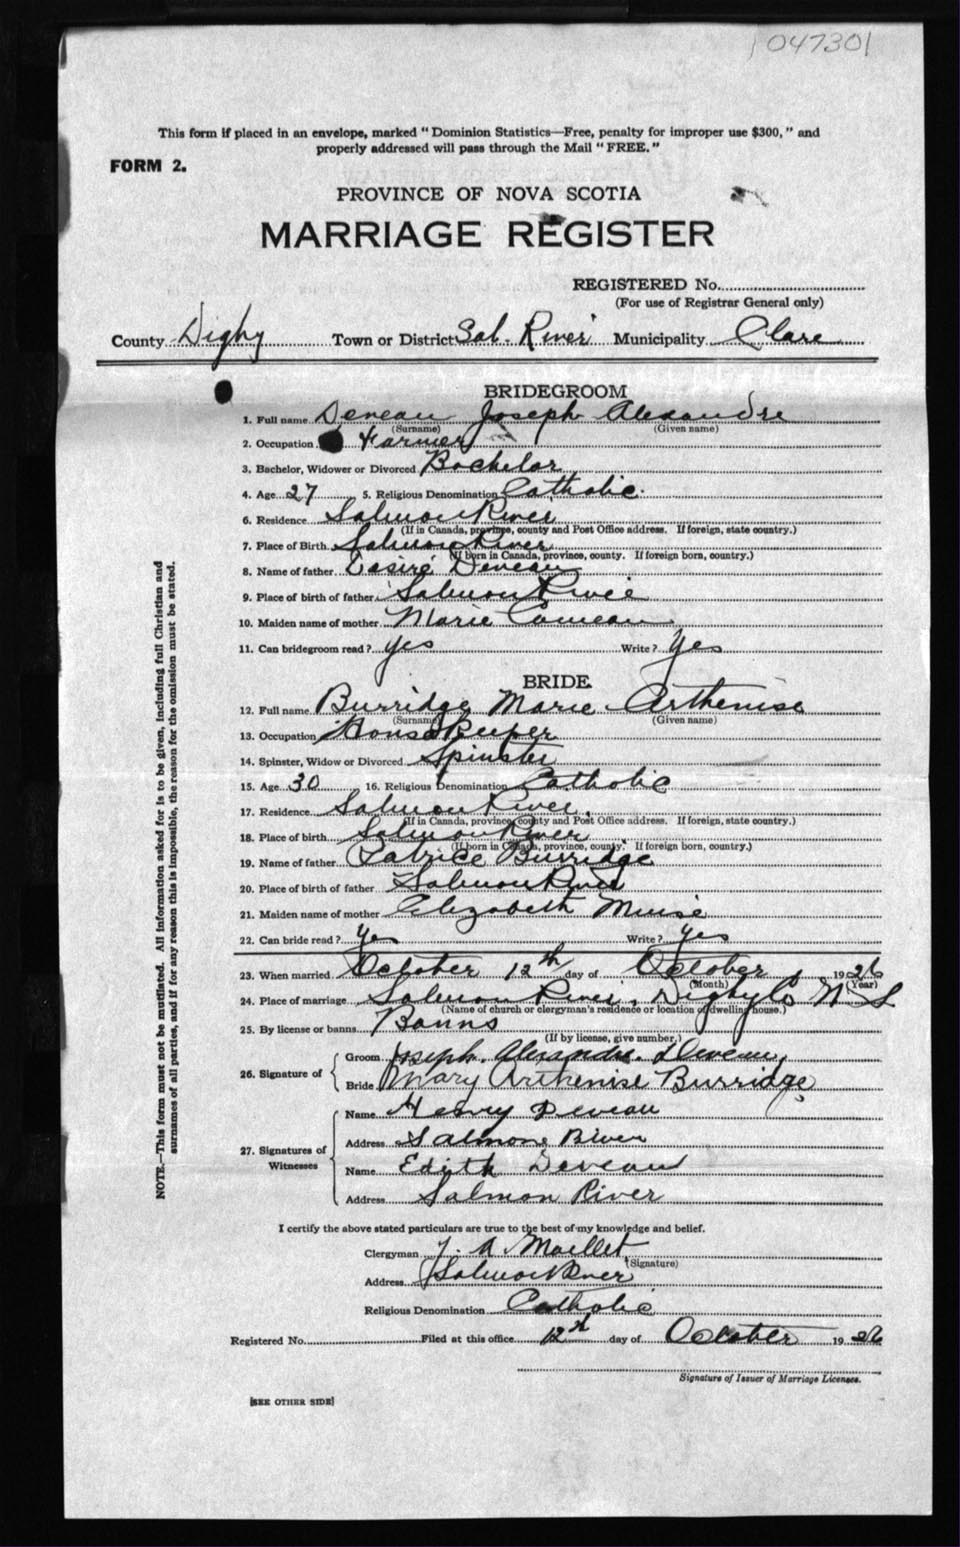 047301
This form if placed in an envelope, marked "Dominion Statistics—Free, penalty for improper use $300," and
properly addressed will pass through the Mail "FREE."
FORM 2.
PROVINCE OF NOVA SCOTIA
MARRIAGE REGISTER
REGISTERED No.
(For use of Registrar General only)
County Digby Town or District Sal. River Municipality Clare
BRIDEGROOM
1. Full name Deveau Joseph Alexandre
(Surname) (Given name)
2. Occupation Farmer
3. Bachelor, Widower or Divorced Bachelor
4. Age 27 5. Religious Denomination Catholic.
6. Residence Salmon River
(If in Canada, province, county and Post Office address. If foreign, state country.)
7. Place of Birth Salmon River
(If born in Canada, province, county. If foreign born, country.)
8. Name of father Deveau
9. Place of birth of father Salmon River
10. Maiden name of mother Marie Comeau
11. Can bridegroom read? yes Write? Yes
BRIDE
12. Full name Burridge Marie Arthenise
(Surname) (Given name)
13. Occupation Housekeeper
14. Spinster, Widow or Divorced Spinster
15. Age 30 16. Religious Denomination Catholic
17. Residence Salmon River
(If in Canada, province, county and Post Office address. If foreign, state country.)
18. Place of birth Salmon River
(If born in Canada, province, county. If foreign born, country.)
19. Name of father Patrice Burridge
20. Place of birth of father Salmon River
21. Maiden name of mother Elizabeth Muise
22. Can bride read? Yes Write? yes
23. When married October 12th day of October 1926
(Month) (Year)
24. Place of marriage Salmon River, Digby Co N S
(Name of church or clergyman's residence or location of dwelling house.)
25. By license or banns Banns
(If by license, give number.)
26. Signature of
Groom Joseph. Alexandre. Deveau,
Bride Mary Arthenise Burridge
27. Signatures of Witnesses
Name Henry Deveau
Address Salmon River
Name Edith Deveau
Address Salmon River
I certify the above stated particulars are true to the best of my knowledge and belief.
Clergyman J. A Maillet
(Signature)
Address Salmon River
Religious Denomination Catholic
Registered No. Filed at this office 12th day of October 1926
Signature of Issuer of Marriage Licenses.
[SEE OTHER SIDE]
NOTE.—This form must not be mutilated. All information asked for is to be given, including full Christian and
surnames of all parties, and if for any reason this is impossible, the reason for the omission must be stated.